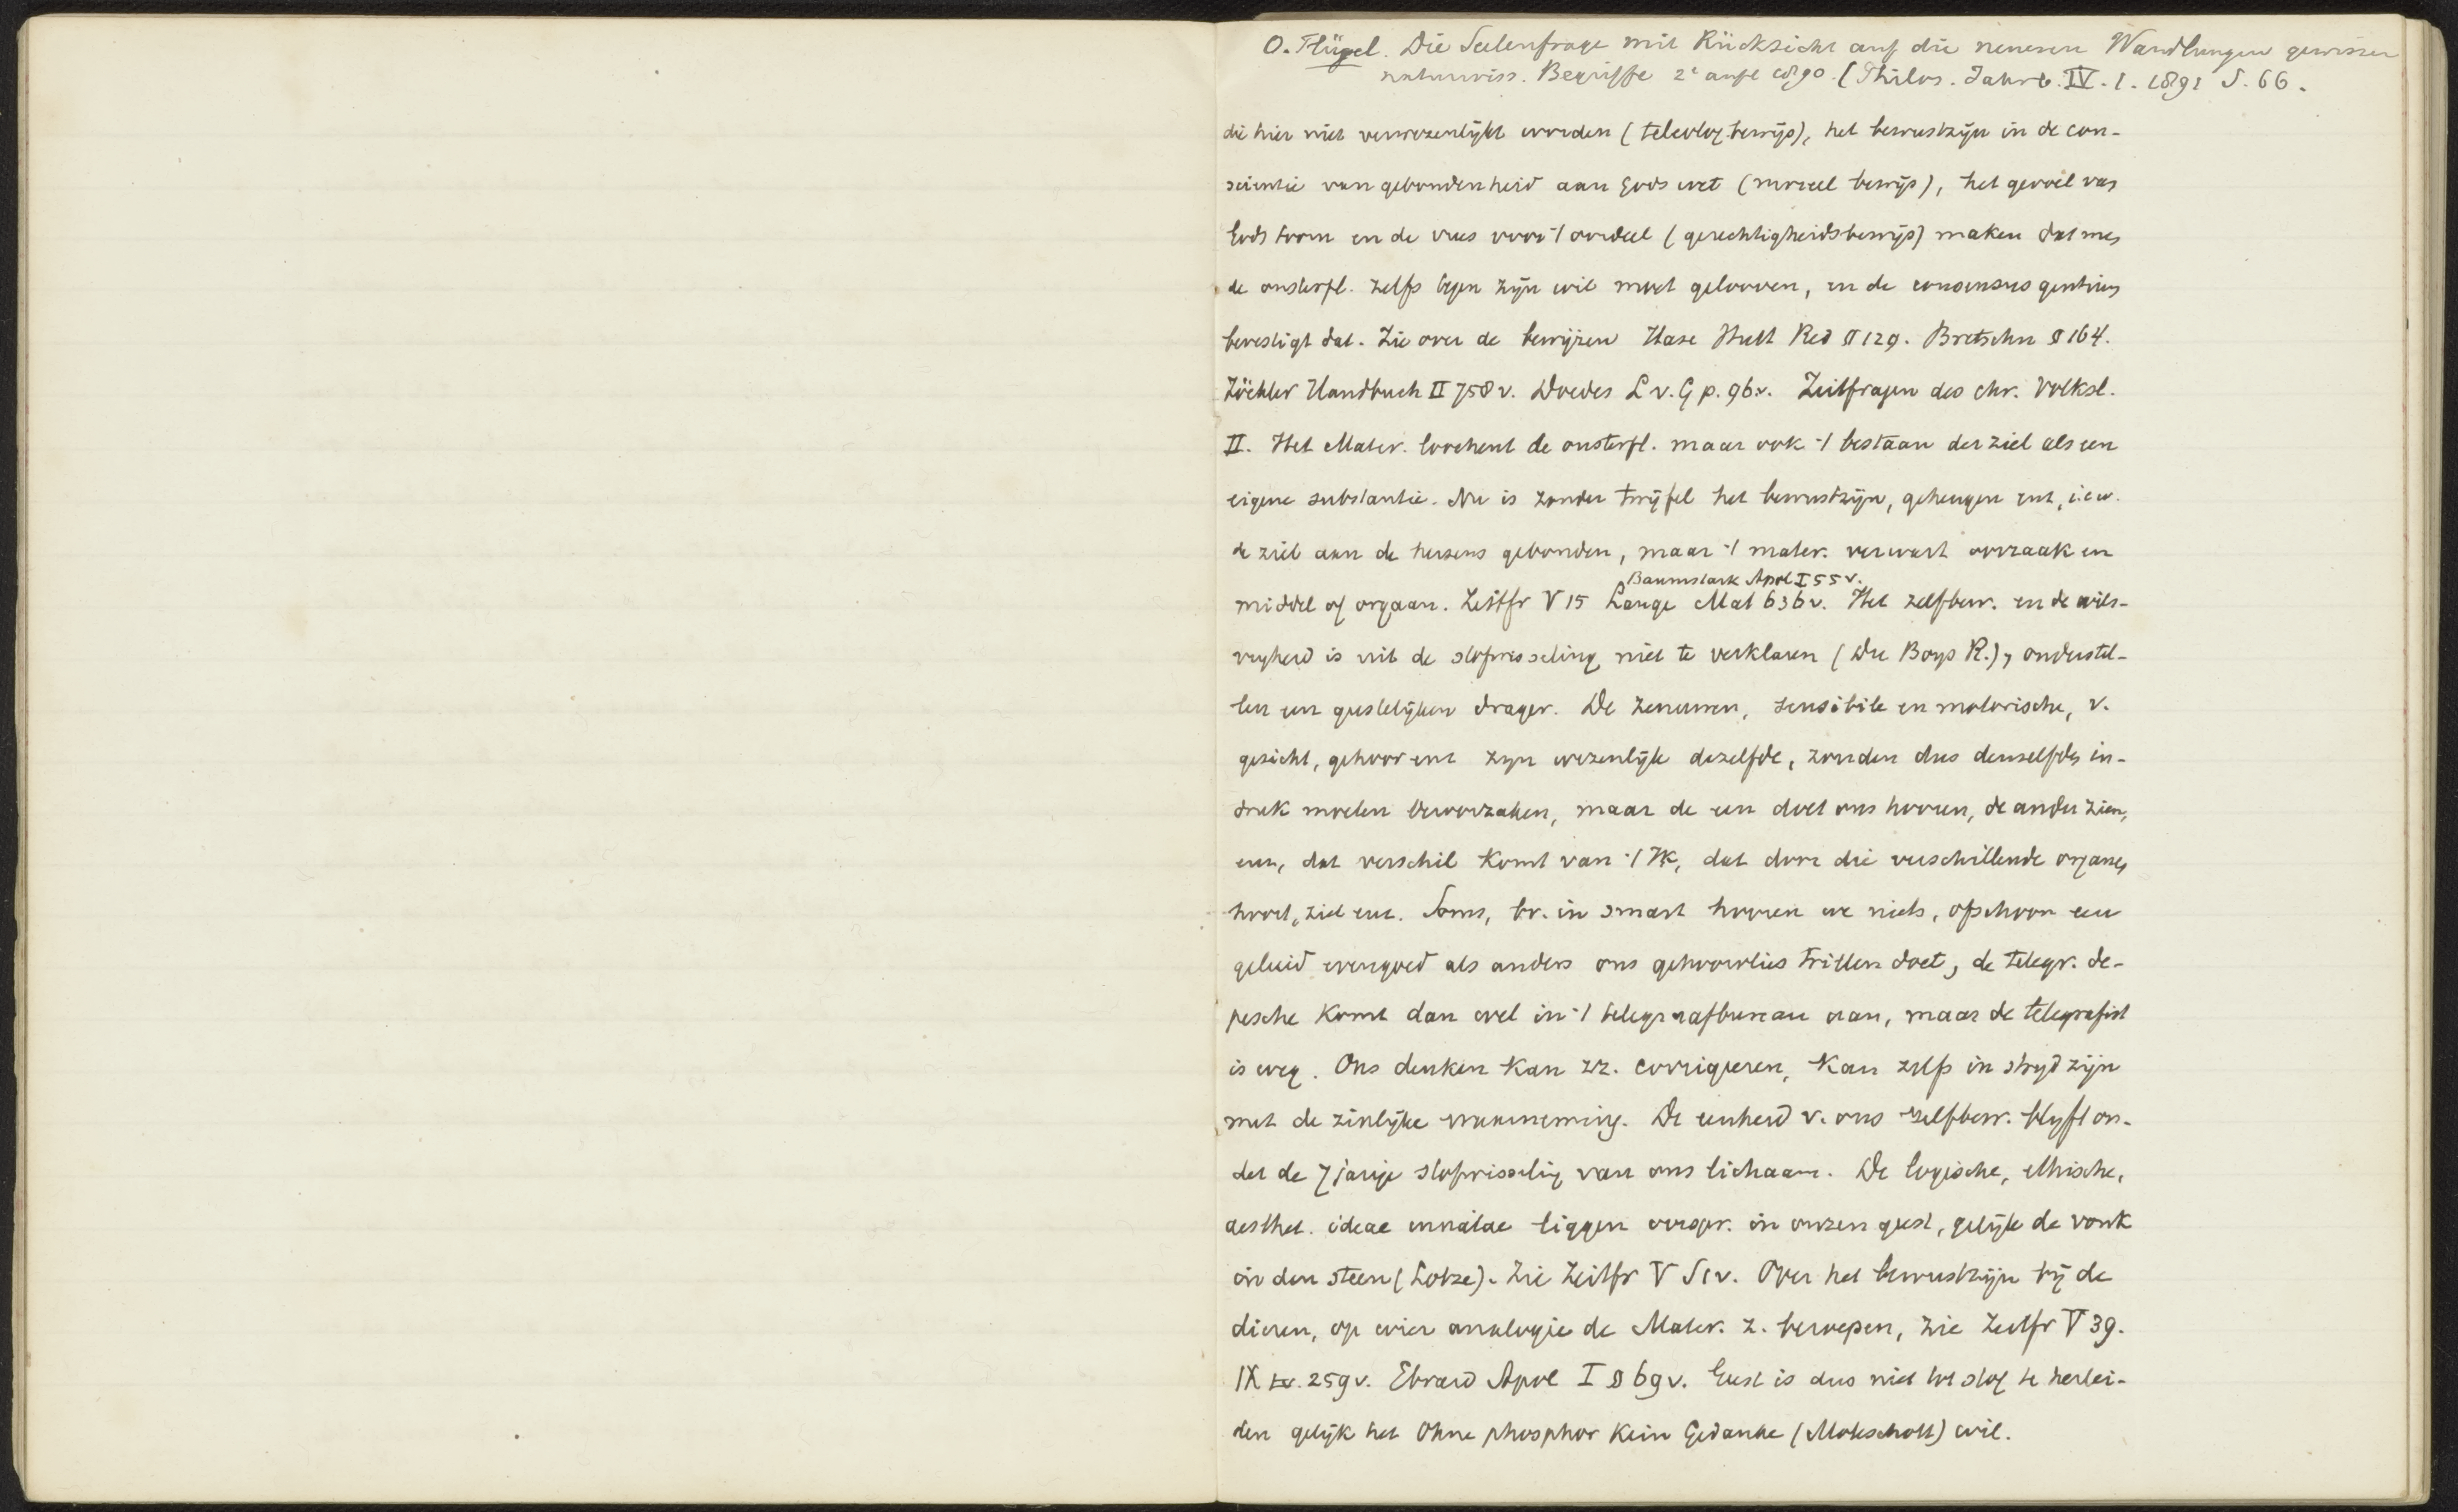 O. Flügel. Die Seelenfrage mit Rücksicht auf die neueren Wandlungen gewisser
naturwiss. Begriffe 2e aufl 1890. (Philos. Jahrb. IV. 1. 1891 S. 66.
die hier niet verwezenlijkt worden (teleolog. bewijs), het bewustzijn in de con-
scientie van gebondenheid aan Gods wet (moreel bewijs), het gevoel van
Gods toorn en de vrees voor 't oordeel (gerechtigheidsbewijs) maken dat men
de onsterfl. zelfs tegen zijn wil moet gelooven, en de consensus gentium
bevestigt dat. Zie over de bewijzen Hase Hutt Red § 129. Bretschn § 164.
Zöckler Handbuch II 758 v. Doedes L v. G p. 96 v. Zeitfragen des chr. Volksl.
II. Het Mater. loochent de onsterfl. maar ook 't bestaan der ziel als een
eigene substantie. Nu is zonder twijfel het bewustzijn, geheugen enz, i.e.w.
de ziel aan de hersens gebonden, maar 't mater. verwart oorzaak en
Baumstark Apol I 55 v.
middel of orgaan. Zeitfr V 15 Lange Mat 636 v. Het zelfbew. en de wils-
vrijheid is uit de stofwisseling niet te verklaren (Du Boys R.), onderstel-
len een geestelijken drager. De zenuwen, sensibile en motorische, v.
gezicht, gehoor enz zijn wezenlijk dezelfde, zouden dus denzelfden in-
druk moeten veroorzaken, maar de een doet ons hooren, de ander zien,
enz, dat verschil komt van 't Ik, dat door die verschillende organen
hoort, ziet enz. Soms, bv. in smart hooren we niets, ofschoon een
geluid evengoed als anders ons gehoorvlies trillen doet, de telegr. de-
pesche komt dan wel in 't telegraafbureau aan, maar de telegrafist
is weg. Ons denken kan zz. corrigeren, kan zelfs in strijd zijn
met de zinlijke waarneming. De eenheid v. ons zelfbew. blijft on-
der de 7 jarige stofwisseling van ons lichaam. De logische, ethische,
aesthet. ideae innatae liggen oorspr. in onzen geest, gelijk de vonk
in den steen (Lotze). Zie Zeitfr V 51 v. Over het bewustzijn bij de
dieren, op wier analogie de Mater. z. beroepen, zie Zeitfr V 39.
IX 259 v. Ebrard Apol I § 69 v. Geest is dus niet tot stof te herlei-
den gelijk het Ohne phosphor Kein Gedanke (Moleschott) wil.